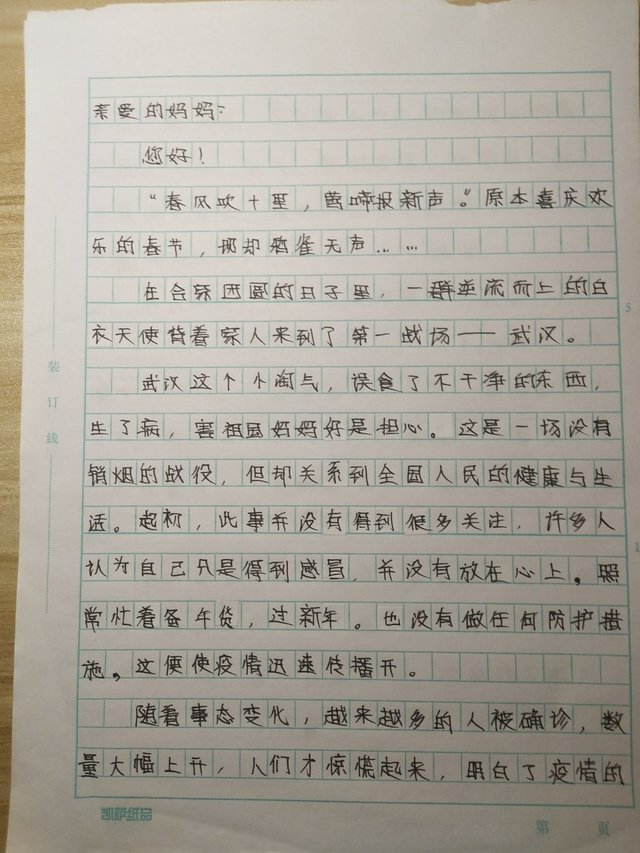 亲爱的妈妈：
您好！
“春风吹十里，莺啼报新声。”原本喜乐欢
乐的春节，那却鸦雀无声……
在合家团圆的日子里，一群逆流而上的白
衣天使背着家人来到了第一战场——武汉。
武汉这个小淘气，误食了不干净的东西，
生了病，害祖国妈妈好是担心。这是一场没有
销烟的战役，但却关系到全国人民的健康与生
活。起初，此事并没有得到很多关注，许多人
认为自己只是得到感冒，并没有放在心上。照
常忙着备年货，过新年。也没有做任何防护措
施，这便使疫情迅速传播开。
随着事态变化，越来越多的人被确诊，数
量大幅上升，人们才惊慌起来，明白了疫情的
装订线
5
1
凯萨纸品
第 页